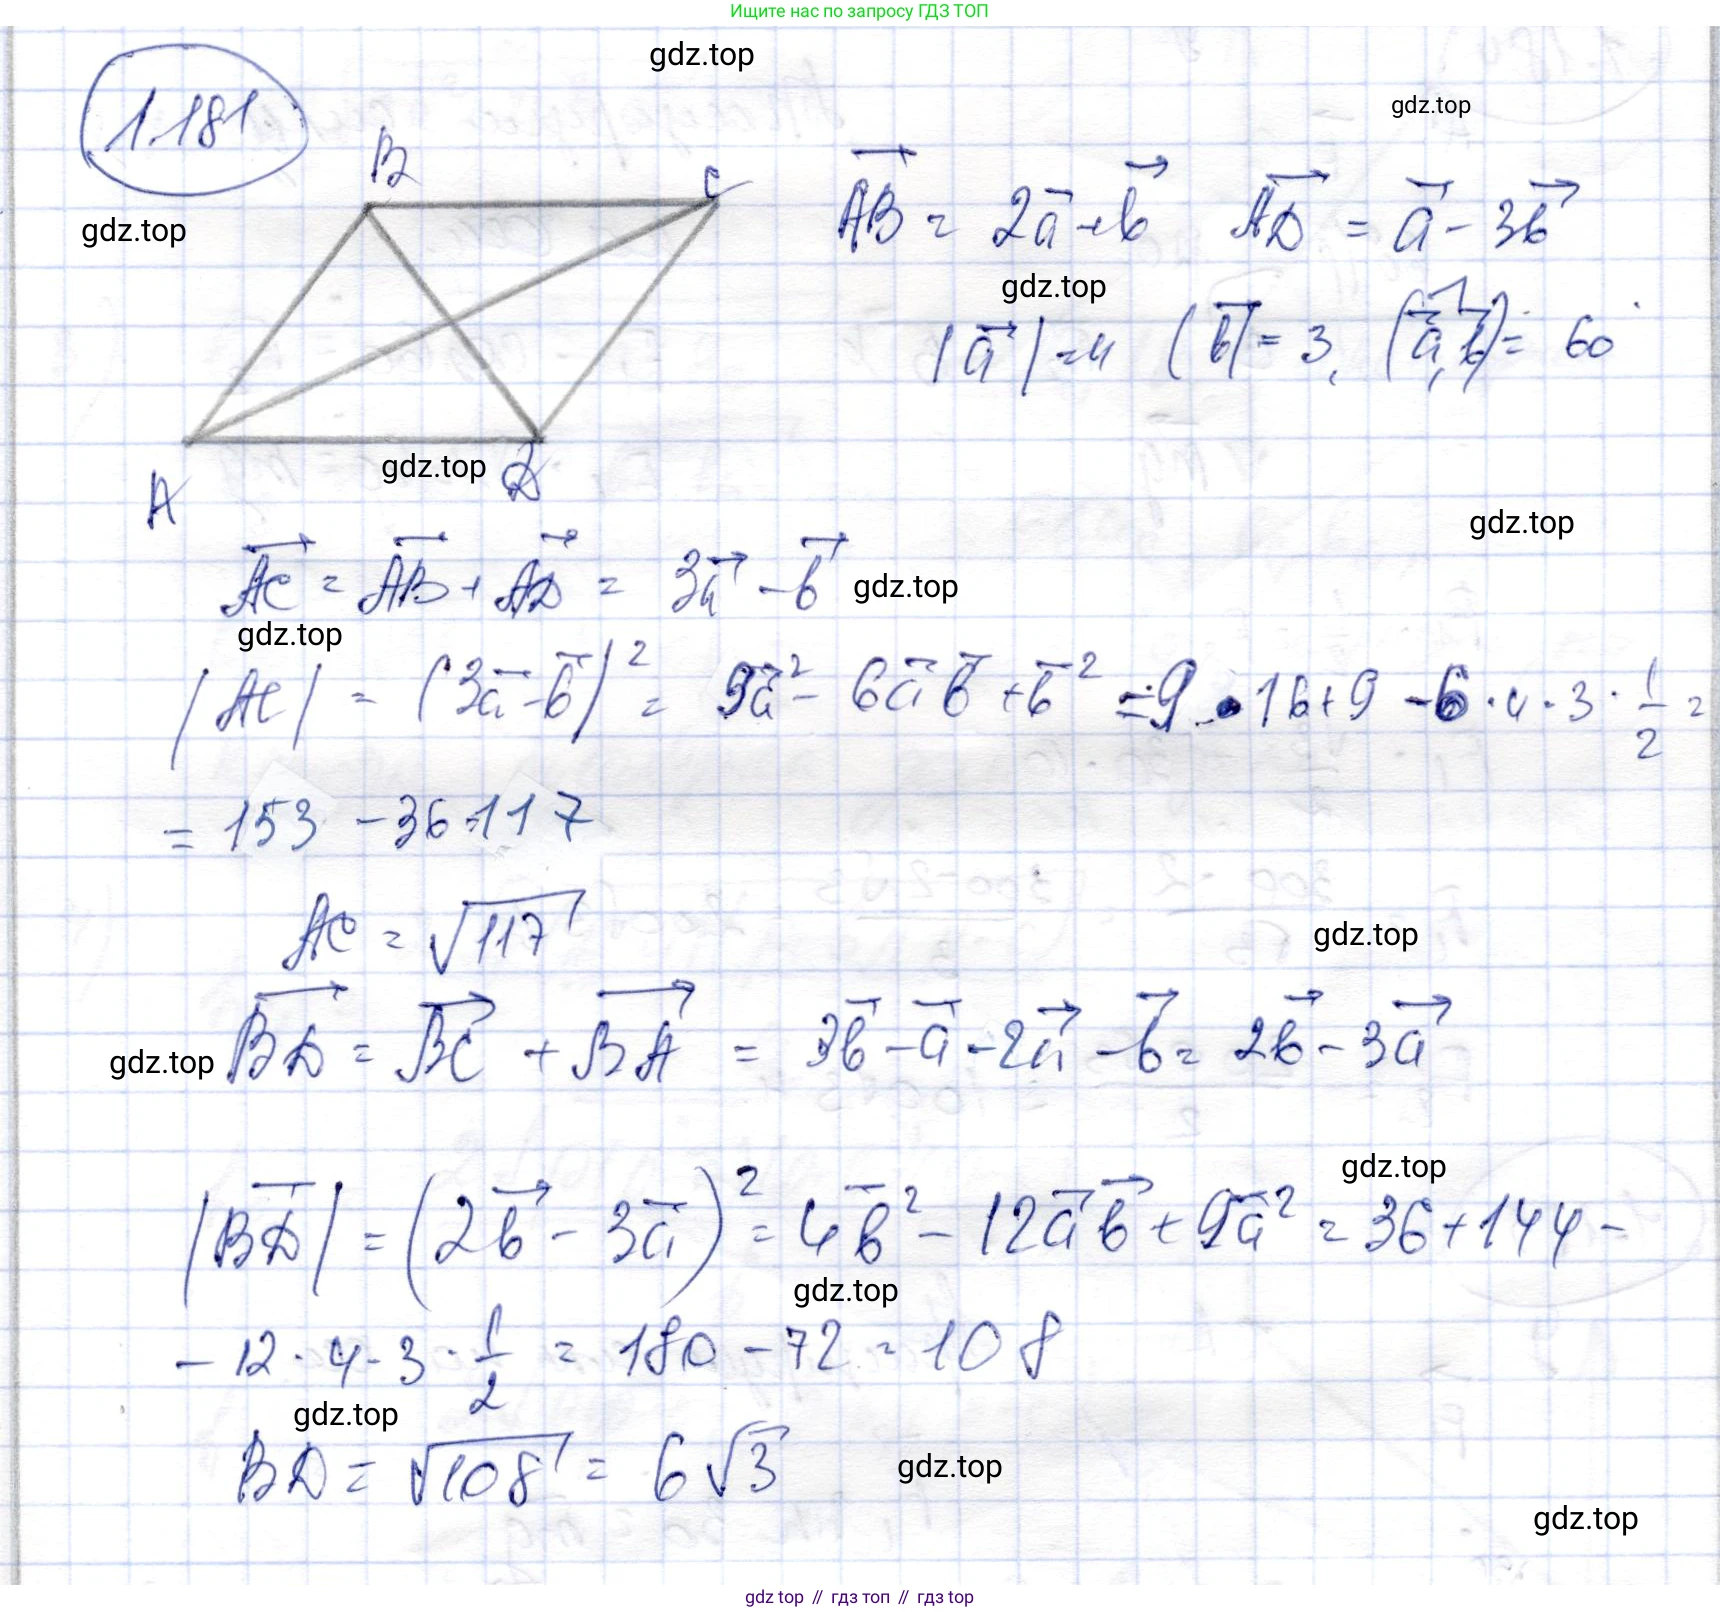 Ищите нас по запросу ГДЗ ТОП
gdz.top
gdz.top
1.181
B
C
gdz.top
AB = 2a + b   AD = a - 3b
gdz.top
|a| = 4   |b| = 3, (a, b) = 60°
gdz.top
A
D
gdz.top
AC = AB + AD = 3a - b
gdz.top
gdz.top
|AC| = (3a - b)² = 9a² - 6ab + b² = 9 · 16 + 9 - 6 · 4 · 3 · 1/2 =
= 153 - 36 = 117
AC = √117
gdz.top
gdz.top
BD = BC + BA = 3b - a - 2a - b = 2b - 3a
gdz.top
|BD| = (2b - 3a)² = 4b² - 12ab + 9a² = 36 + 144 -
gdz.top
- 12 · 4 · 3 · 1/2 = 180 - 72 = 108
gdz.top
BD = √108 = 6√3
gdz.top
gdz.top
gdz top // гдз топ // gdz top